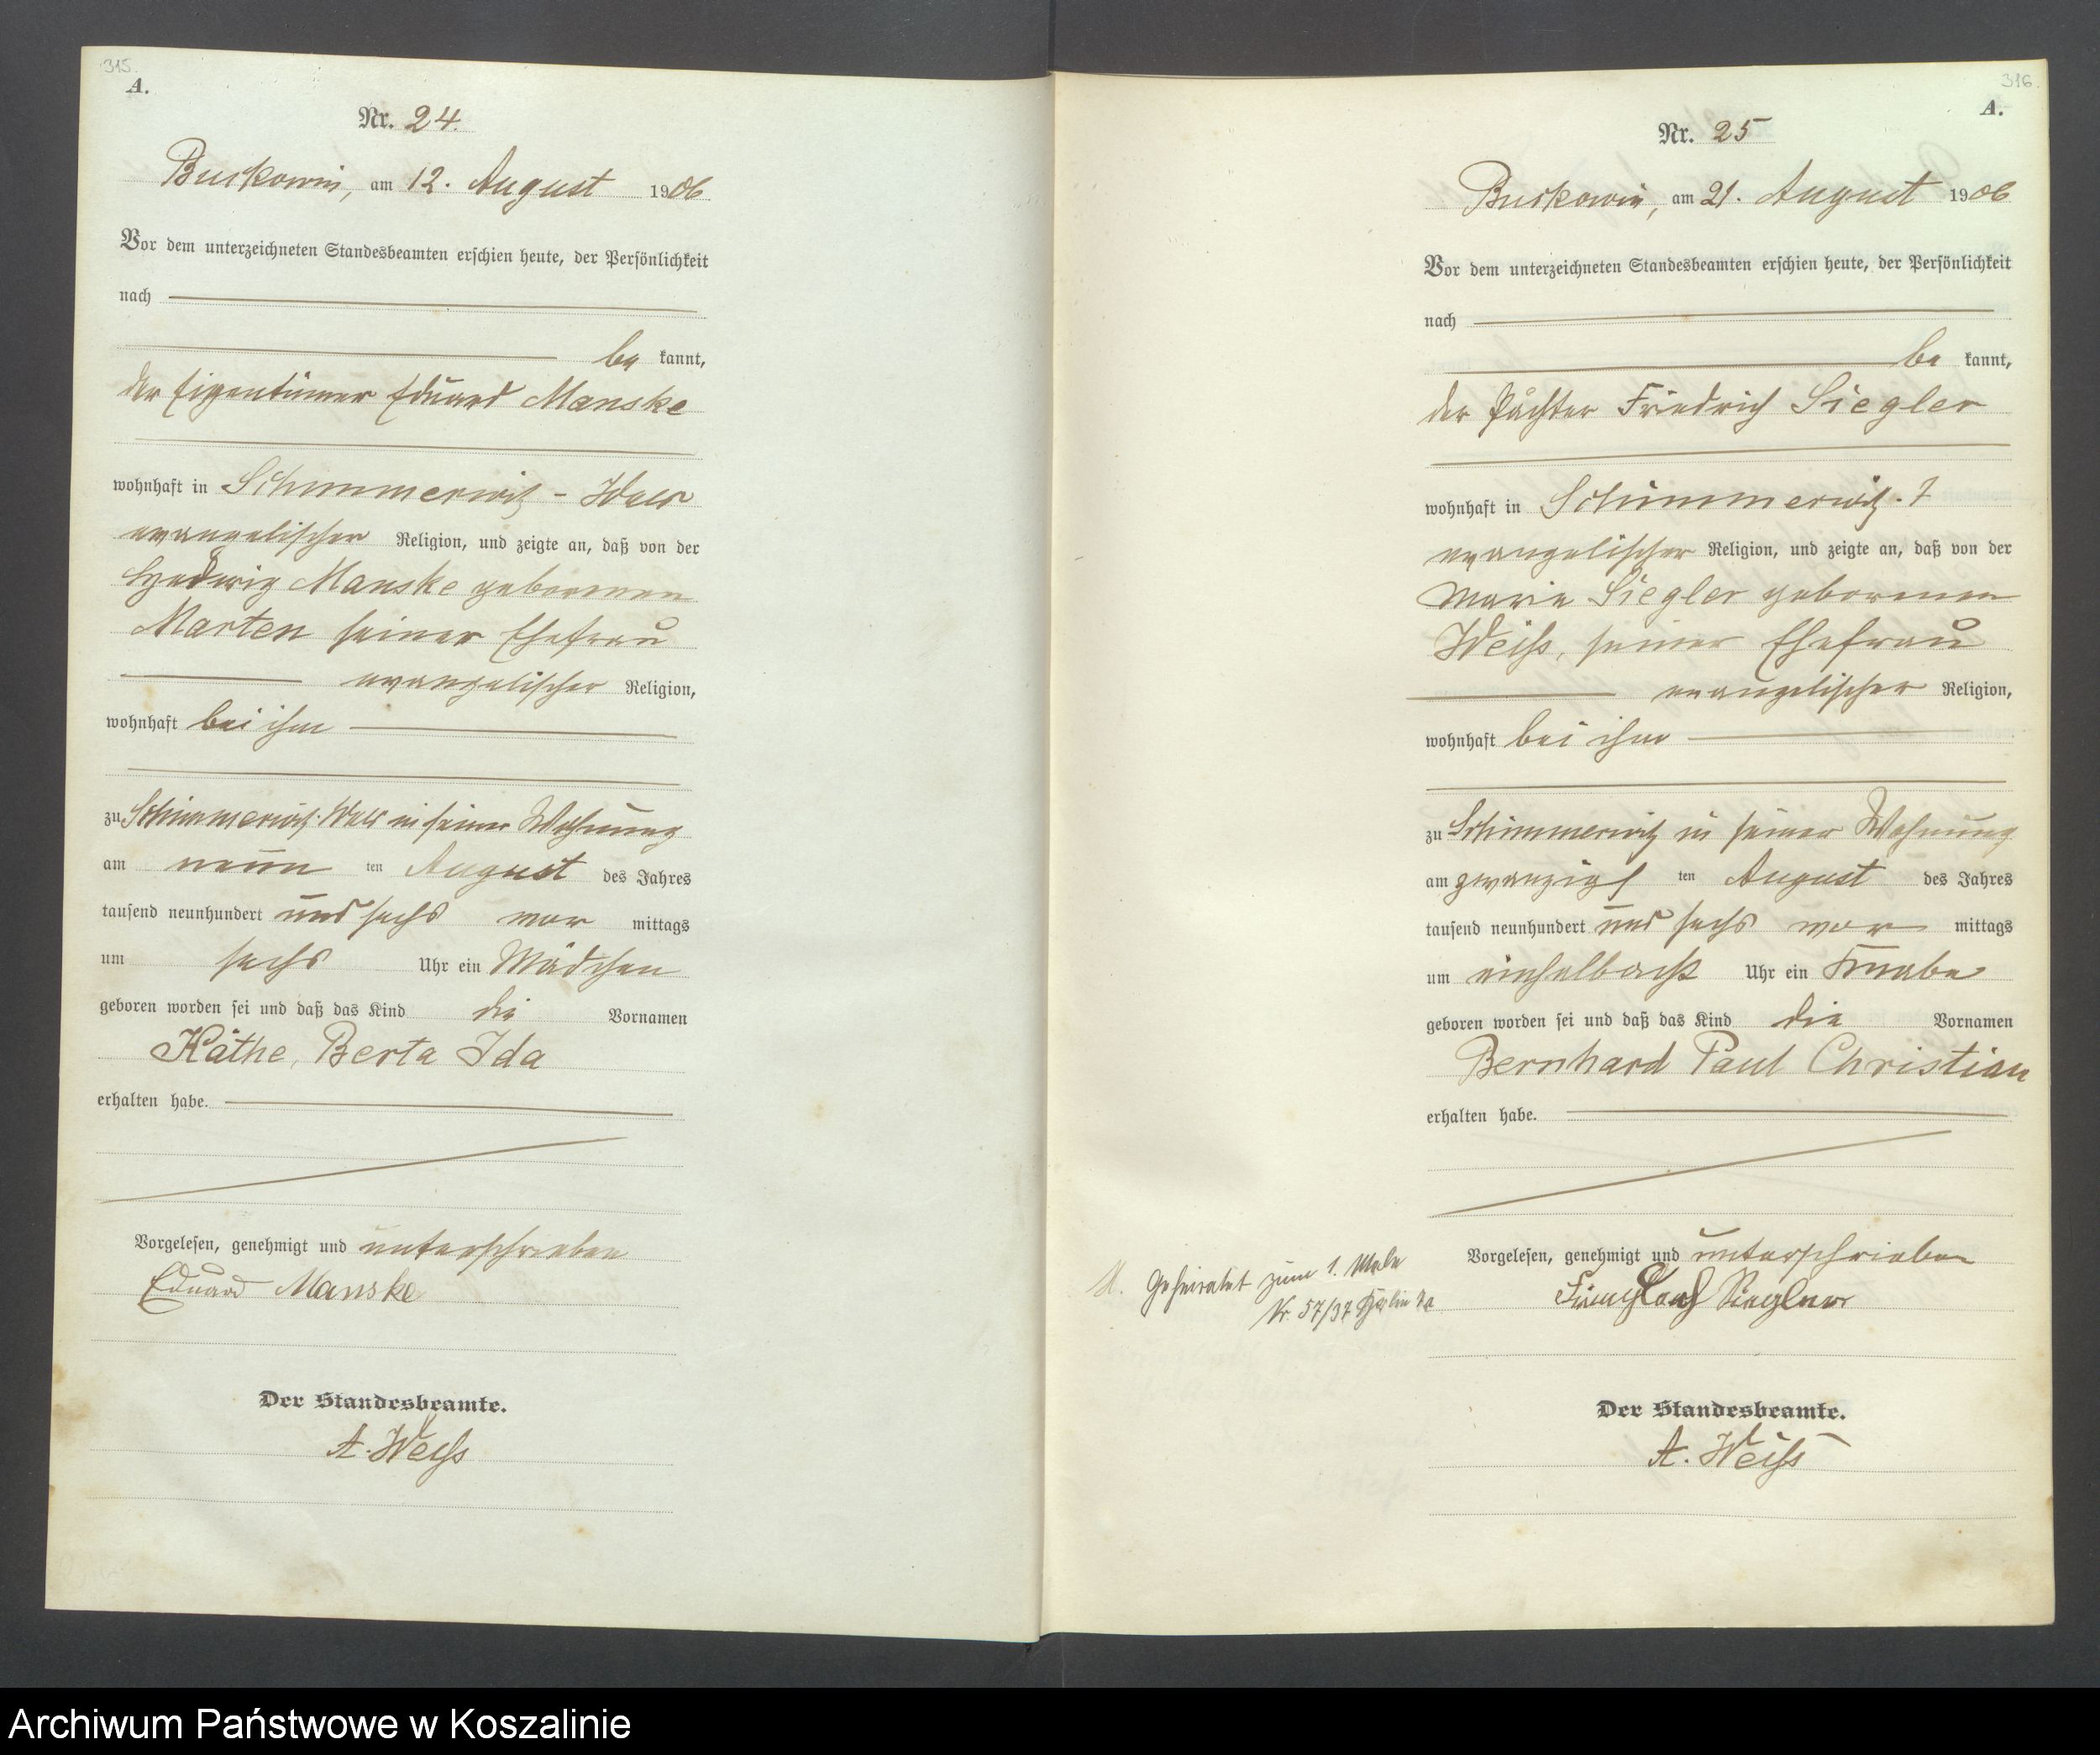 315.
A.
Nr. 24.
Buckowin, am 12. August 1906
Vor dem unterzeichneten Standesbeamten erschien heute, der Persönlichkeit
nach
be kannt,
der Eigentümer Eduard Manske
wohnhaft in Schimmerwitz-
evangelischer Religion, und zeigte an, daß von der
Hedwig Manske geborenen
Marten seiner Ehefrau
evangelischer Religion,
wohnhaft bei ihm
zu Schimmerwitz in seiner Wohnung
am neun ten August des Jahres
tausend neunhundert und sechs vor mittags
um sechs Uhr ein Mädchen
geboren worden sei und daß das Kind die Vornamen
Käthe, Berta Ida
erhalten habe.
Vorgelesen, genehmigt und unterschrieben
Eduard Manske
Der Standesbeamte.
A. Weiß
316.
A.
Nr. 25
Buckowin, am 21. August 1906
Vor dem unterzeichneten Standesbeamten erschien heute, der Persönlichkeit
nach
be kannt,
der Pächter Friedrich Siegler
wohnhaft in Schimmerwitz
evangelischer Religion, und zeigte an, daß von der
Maria Siegler geborenen
Weiß, seiner Ehefrau
evangelischer Religion,
wohnhaft bei ihm
zu Schimmerwitz in seiner Wohnung
am zwanzigs ten August des Jahres
tausend neunhundert und sechs vor mittags
um einhalbacht Uhr ein Knabe
geboren worden sei und daß das Kind die Vornamen
Bernhard Paul Christian
erhalten habe.
Vorgelesen, genehmigt und unterschrieben
Siegler
Geheiratet zum 1. Male
Nr. 57/37 Berlin
Der Standesbeamte.
A. Weiß
Archiwum Państwowe w Koszalinie